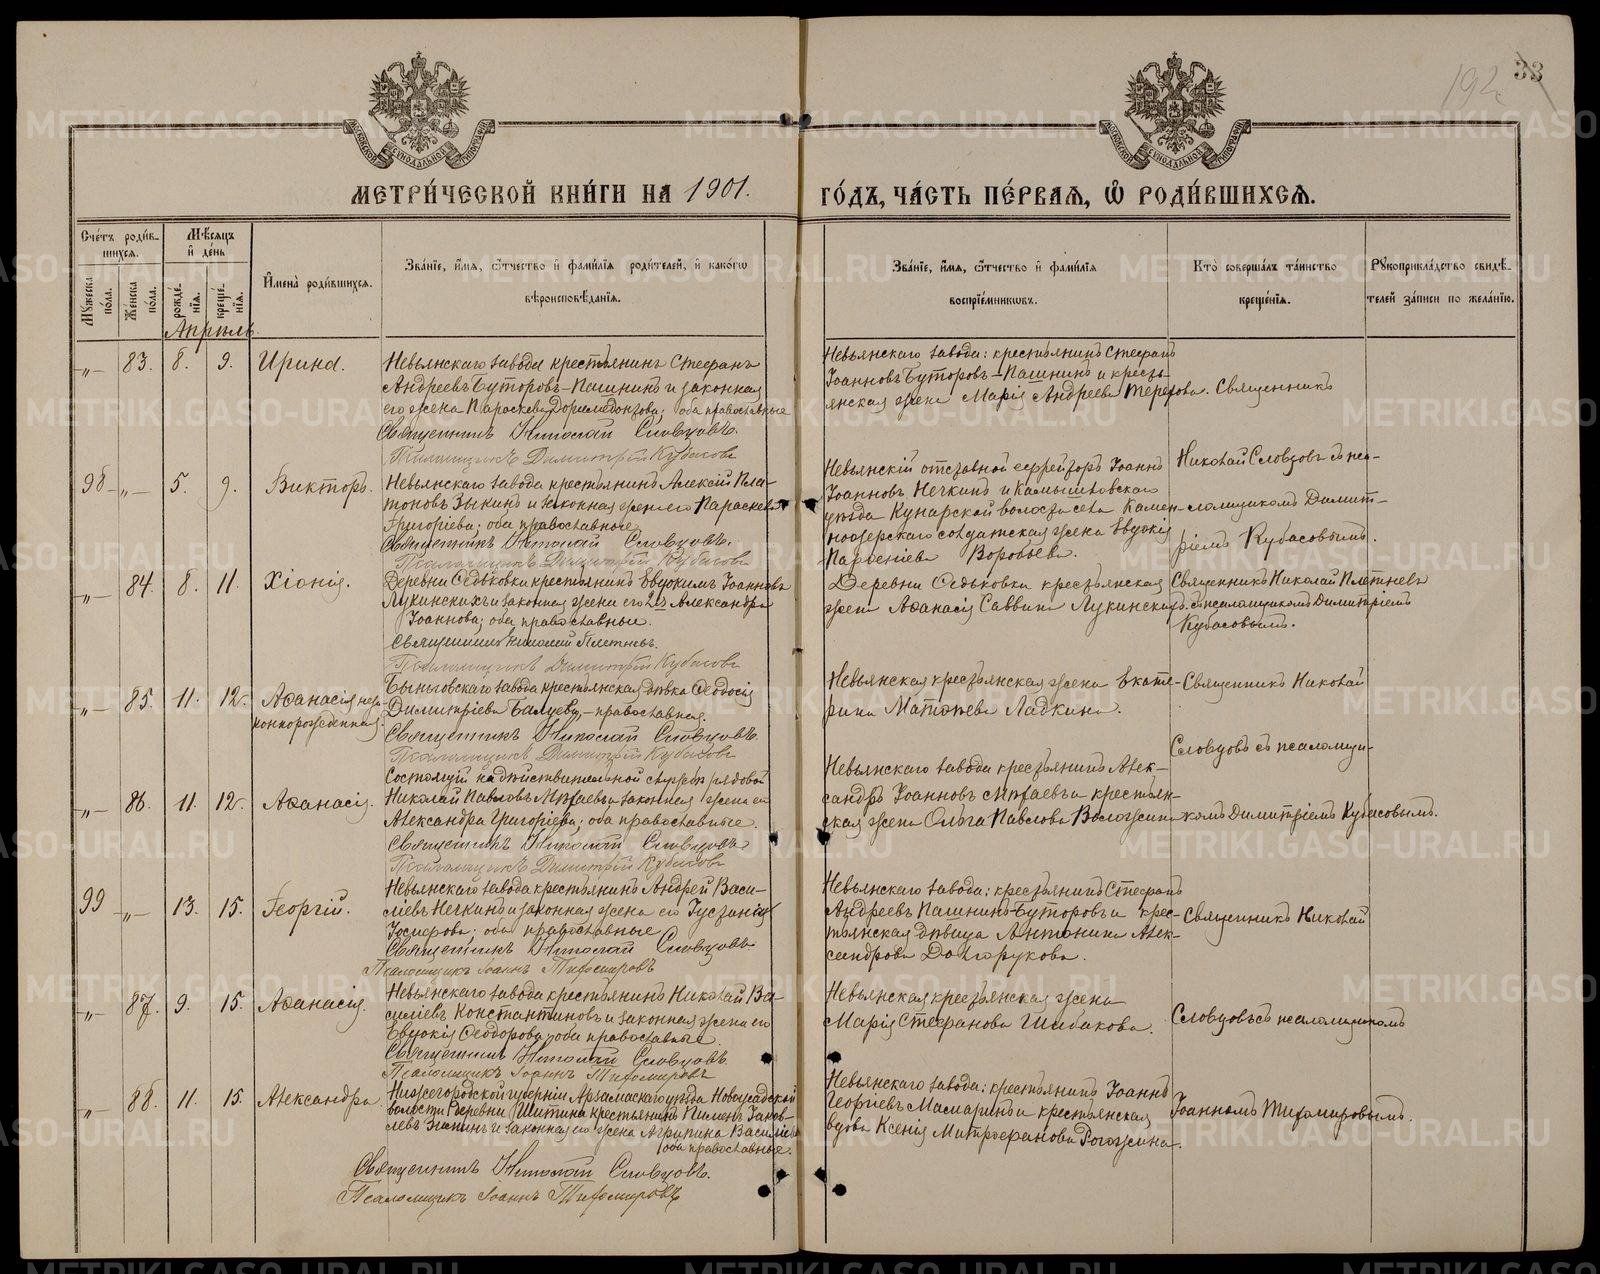 192
33
МОСКОВСКОЙ СѴНОДАЛЬНОЙ ТИПОГРАФІИ
МОСКОВСКОЙ СѴНОДАЛЬНОЙ ТИПОГРАФІИ
МЕТРИ́ЧЕСКОЙ КНИ́ГИ НА 1901.
ГО́ДЪ, ЧА́СТЬ ПЕ́РВАѦ, Ѡ҆ РОДИ́ВШИХСѦ.
Сче́тъ роди́в-
шихся.
Мꙋ́жеска по́ла.
Же́нска по́ла.
Мѣ́сяцъ и҆ де́нь
рожде́-нїя.
креще́-нїя.
И҆мена̀ роди́вшихся.
Зва́нїе, и҆́мя, ѻ҆́тчество и҆ фами́лїя роди́телей, и҆ како́гѡ
вѣроисповѣ́данїя.
Зва́нїе, и҆́мя, ѻ҆́тчество и҆ фами́лїя
воспрїе́мникѡвъ.
Кто̀ соверша́лъ та́инство
креще́нїя.
Рꙋкоприкла́дство свидѣ́-
телей за́писи по жела́нїю.
Апрѣль.
„ 83. 8. 9. Ирина.
Невьянскаго завода крестьянинъ Стефанъ
Андреевъ Буторовъ-Пашнинъ и законная
его жена Параскева Доримедонтова; оба православные
Священникъ Николай Словцовъ.
Псаломщикъ Димитрій Кубасовъ
Невьянскаго завода: крестьянинъ Стефанъ
Іоанновъ Буторовъ-Пашнинъ и кресть-
янская жена Марія Андреева Терехова.
Священникъ
98 „ 5. 9. Викторъ.
Невьянскаго завода крестьянинъ Алексій Пла-
тоновъ Зыкинъ и законная жена его Параскева
Григоріева; оба православные
Священникъ Николай Словцовъ.
Псаломщикъ Димитрій Кубасовъ
Невьянскій отставной ефрейторъ Іоаннъ
Іоанновъ Нечкинъ и Камышловскаго
уѣзда Кунарской волости села Камен-
ноозерскаго солдатская жена Евдокія
Парфеніева Воробьева.
Николай Словцовъ съ пса-
ломщикомъ Димит-
ріемъ Кубасовымъ.
„ 84. 8. 11. Хіонія.
Деревни Ѳедьковки крестьянинъ Евдокимъ Іоанновъ
Лукинскихъ и законная жена его 2го Александра
Іоаннова; оба православные.
Священникъ Николай Плетневъ.
Псаломщикъ Димитрій Кубасовъ
Деревни Ѳедьковки крестьянская
жена Аѳанасія Саввина Лукинскихъ.
Священникъ Николай Плетневъ
съ псаломщикомъ Димитріемъ
Кубасовымъ.
„ 85. 11. 12. Аѳанасія неза-
коннорожденная.
Быньговскаго завода крестьянская дѣвка Ѳеодосія
Димитріева, православная.
Священникъ Николай Словцовъ.
Псаломщикъ Димитрій Кубасовъ
Невьянская крестьянская жена Екате-
рина Матѳеева Ладкина.
Священникъ Николай
„ 86. 11. 12. Аѳанасія.
Состоящій на дѣйствительной службѣ рядовой
Николай Павловъ и законная жена его
Александра Григоріева; оба православные.
Священникъ Николай Словцовъ
Псаломщикъ Димитрій Кубасовъ
Невьянскаго завода крестьянинъ Алек-
сандръ Іоанновъ и крестьян-
ская жена Ольга Павлова
Словцовъ съ псаломщи-
комъ Димитріемъ Кубасовымъ.
99 „ 13. 15. Георгій.
Невьянскаго завода крестьянинъ Андрей Васи-
ліевъ Нечкинъ и законная жена его Іустинія
православные
Священникъ Николай Словцовъ
Псаломщикъ Іоаннъ Тихомировъ
Невьянскаго завода: крестьянинъ Стефанъ
Андреевъ Пашнинъ-Буторовъ и крес-
тьянская дѣвица Антонина Алек-
сандрова Долгорукова.
Священникъ Николай
„ 87. 9. 15. Аѳанасія.
Невьянскаго завода крестьянинъ Николай Ва-
силіевъ Константиновъ и законная жена его
Евдокія Ѳеодорова; оба православные.
Священникъ Николай Словцовъ
Псаломщикъ Іоаннъ Тихомировъ
Невьянская крестьянская жена
Марія Стефанова Шибакова.
Словцовъ съ псаломщикомъ
„ 88. 11. 15. Александра
Нижегородской губерніи Арзамаскаго уѣзда Новоусадской
волости деревни крестьянинъ Пименъ Іаков-
левъ и законная его жена Агрипина Василіева
оба православные.
Священникъ Николай Словцовъ.
Псаломщикъ Іоаннъ Тихомировъ
Невьянскаго завода: крестьянинъ Іоаннъ
Георгіевъ Масмаринъ и крестьянская
вдова Ксенія Митрофанова Рогожина.
Іоанномъ Тихомировымъ.
METRIKI.GASO-URAL.RU